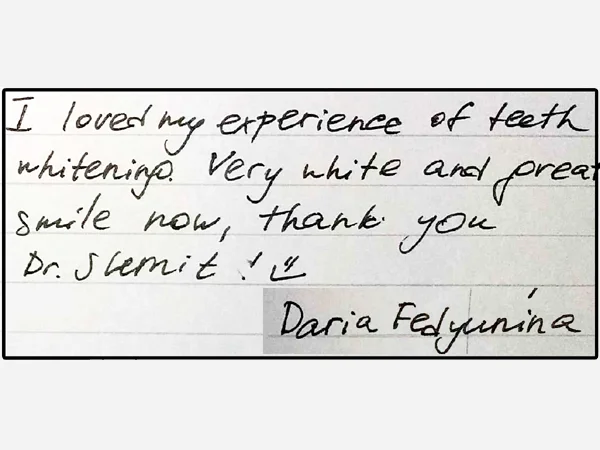 I loved my experience of teeth
whitening. Very white and great
smile now, thank you
Dr. Slemit !
Daria Fedyunina